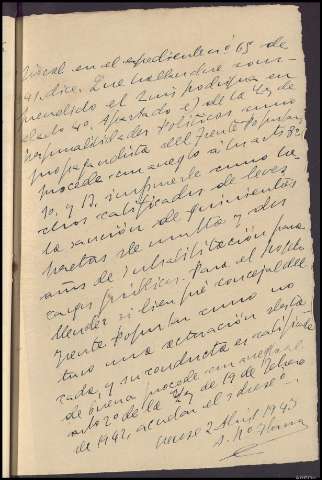 Fiscal en el expediente nº 65 de
41, dice: Que hallandose com-
prendido el Luis Rodriguez en
el arto 4º, Apartado e) de la Ley de
responsabilidades Politicas como
propagandista del Frente Popular
procede con arreglo a los arts 8º,
10, y 13, imponerle como he-
chos calificados de leves
la sanción de quinientas
pesetas de multa y dos
años de inhabilitación para
cargos públicos. Para el
Mendez si bien fué concejal del
Frente Popular como no
tuvo una actuación desta-
cada, y su conducta es calificada
de buena, procede con arreglo al
arto 2º de la Ley de 19 de Febrero
de 1942, acordar el sobreseo.
2 Abril 1943